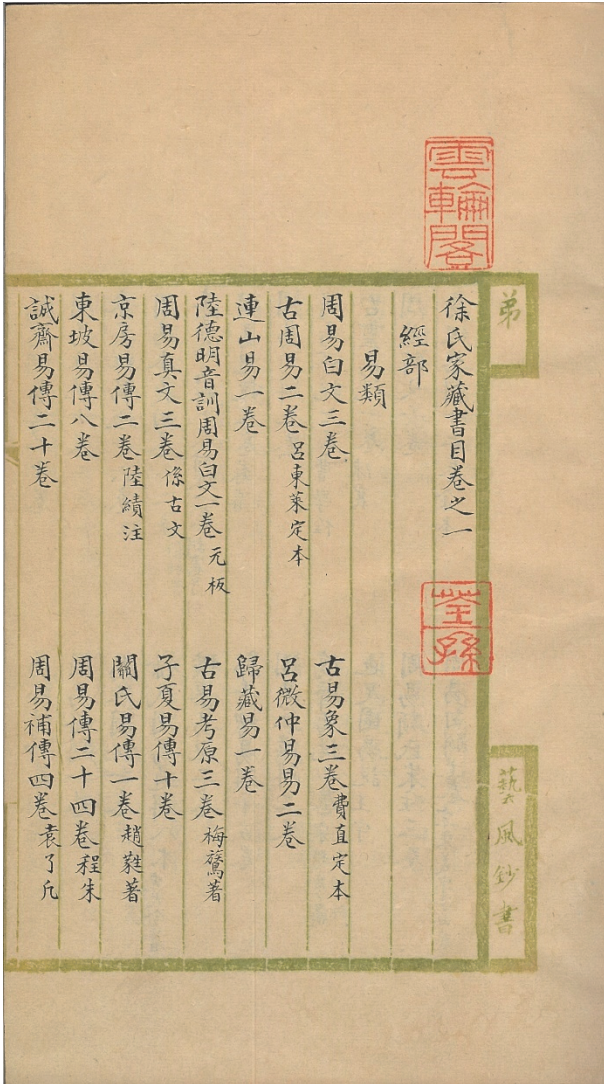 雲輪閣
荃孫
弟
藝風鈔書
徐氏家藏書目卷之一
經部
易類
周易白文三卷
古易象三卷費直定本
古周易二卷呂東萊定本
呂微仲易易二卷
連山易一卷
歸藏易一卷
陸德明音訓周易白文一卷元板
古易考原三卷梅鷟著
周易真文三卷係古文
子夏易傳十卷
京房易傳二卷陸績注
關氏易傳一卷趙蕤著
東坡易傳八卷
周易傳二十四卷程朱
誠齋易傳二十卷
周易補傳四卷袁了凡